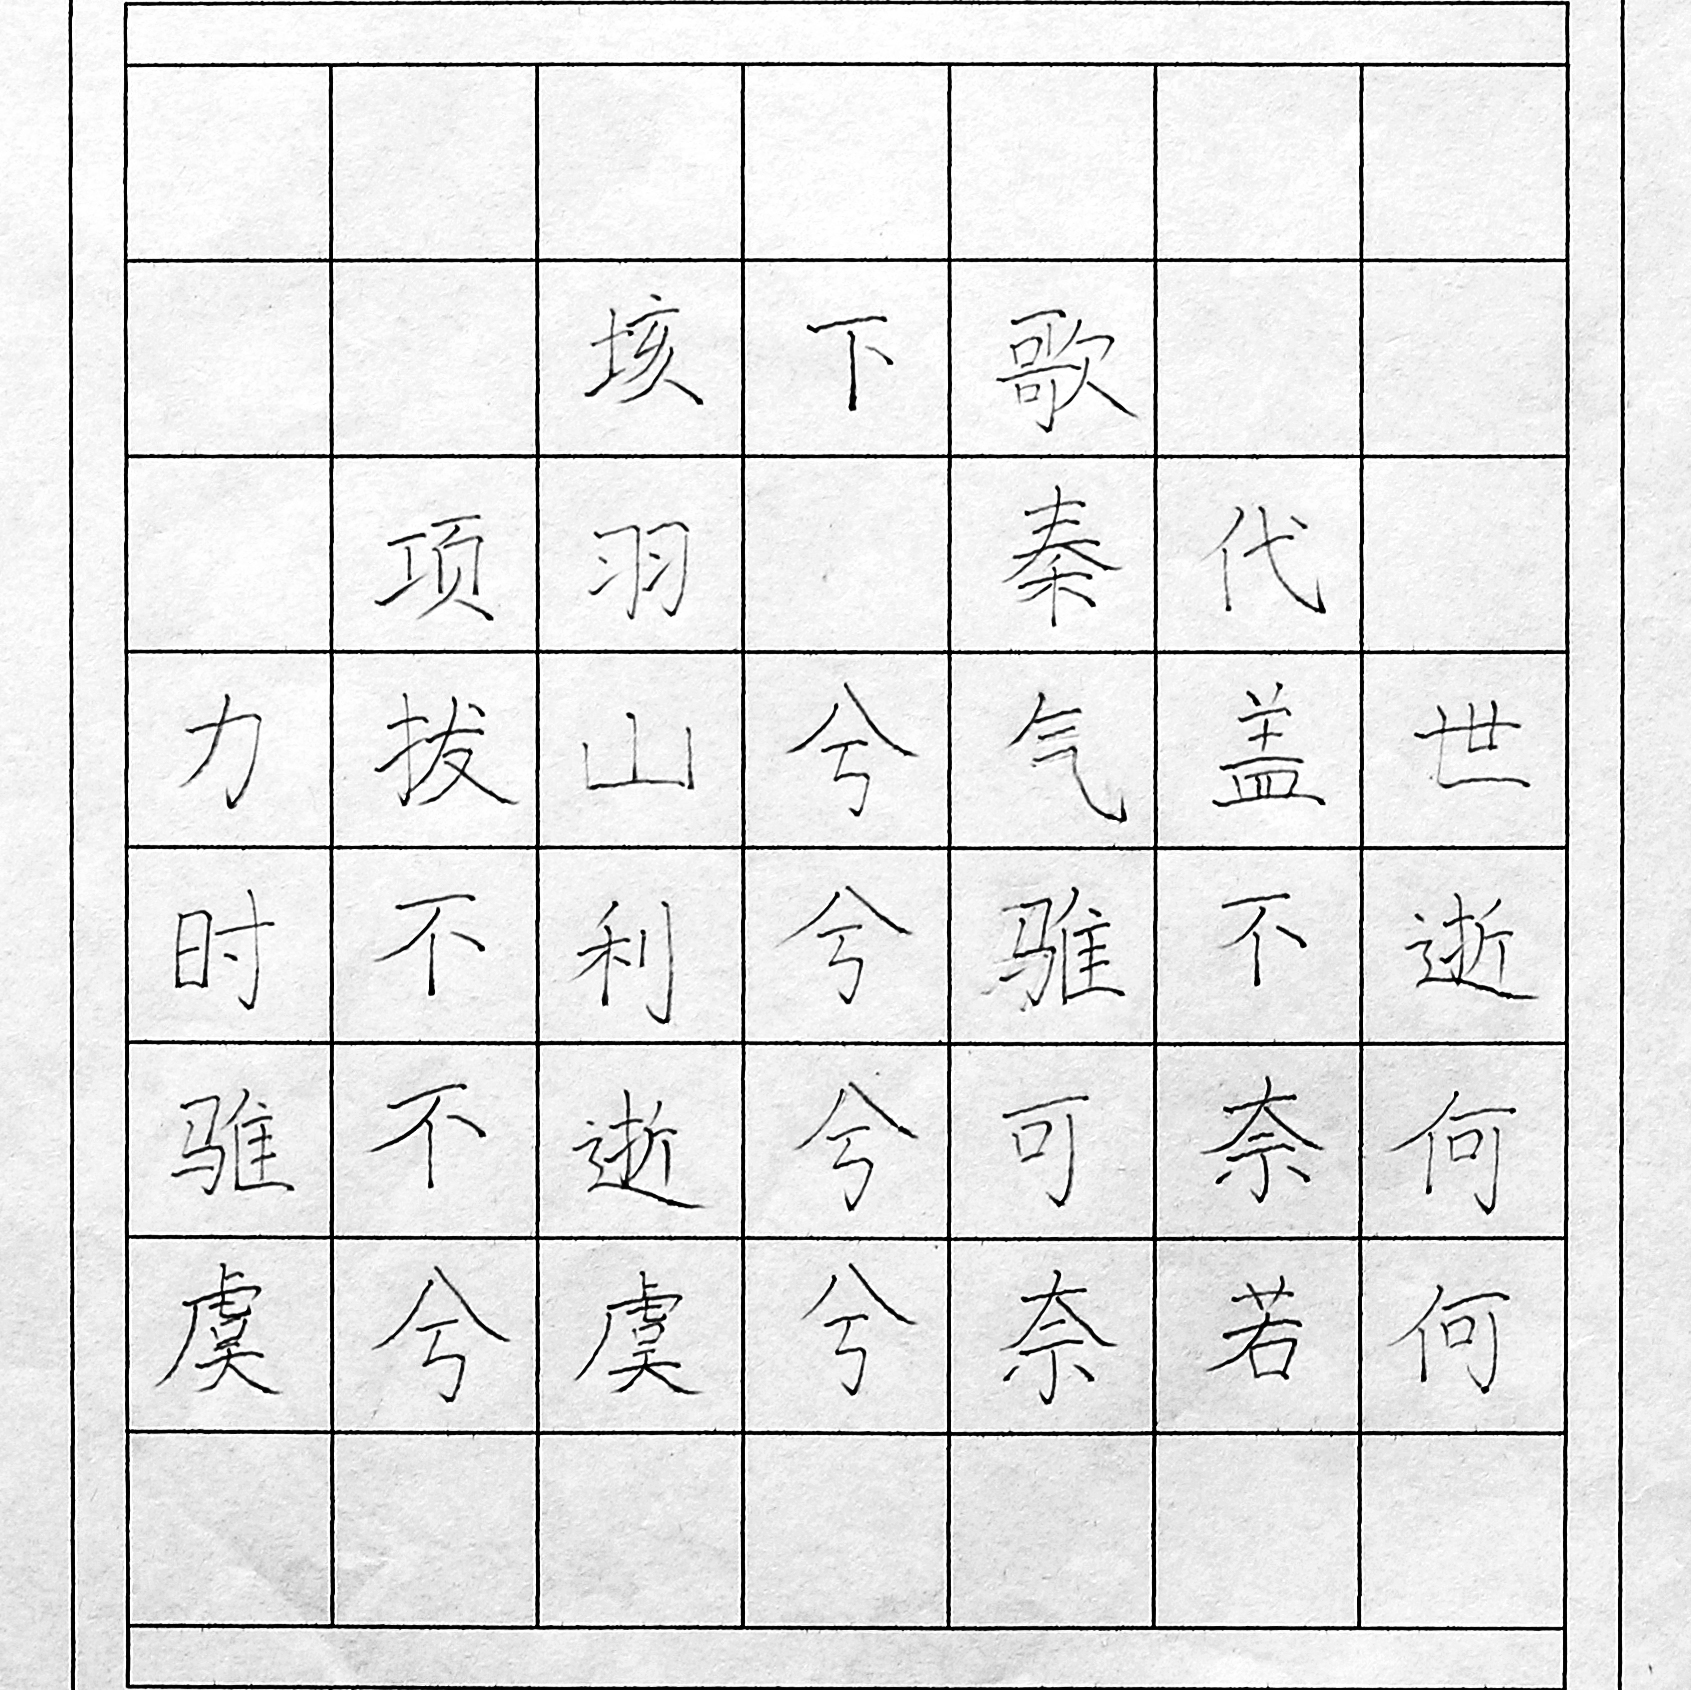 垓下歌
项羽 秦代
力拔山兮气盖世
时不利兮骓不逝
骓不逝兮可奈何
虞兮虞兮奈若何